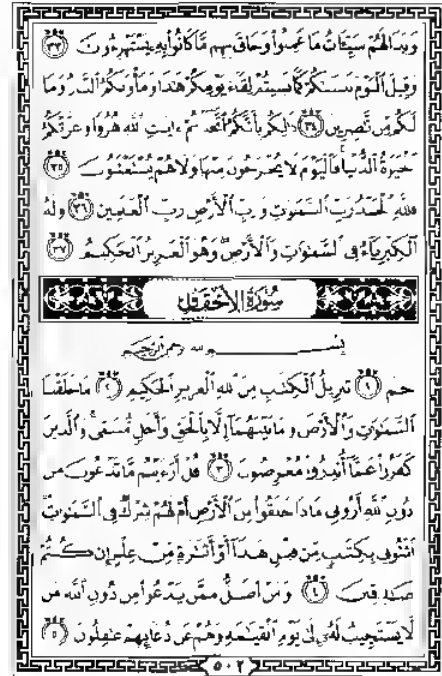 وَبَدَا لَهُمْ سَيِّئَاتُ مَا عَمِلُوا وَحَاقَ بِهِم مَّا كَانُوا بِهِ يَسْتَهْزِءُونَ ٣٣
وَقِيلَ الْيَوْمَ نَنسَىٰكُمْ كَمَا نَسِيتُمْ لِقَاءَ يَوْمِكُمْ هَٰذَا وَمَأْوَىٰكُمُ النَّارُ وَمَا
لَكُم مِّن نَّٰصِرِينَ ٣٤ ذَٰلِكُم بِأَنَّكُمُ اتَّخَذْتُمْ ءَايَٰتِ اللَّهِ هُزُوًا وَغَرَّتْكُمُ
الْحَيَوٰةُ الدُّنْيَا فَالْيَوْمَ لَا يُخْرَجُونَ مِنْهَا وَلَا هُمْ يُسْتَعْتَبُونَ ٣٥
فَلِلَّهِ الْحَمْدُ رَبِّ السَّمَٰوَٰتِ وَرَبِّ الْأَرْضِ رَبِّ الْعَٰلَمِينَ ٣٦ وَلَهُ
الْكِبْرِيَاءُ فِي السَّمَٰوَٰتِ وَالْأَرْضِ وَهُوَ الْعَزِيزُ الْحَكِيمُ ٣٧
سُورَةُ الْأَحْقَافِ
بِسْمِ اللَّهِ الرَّحْمَٰنِ الرَّحِيمِ
حمٓ ١ تَنزِيلُ الْكِتَٰبِ مِنَ اللَّهِ الْعَزِيزِ الْحَكِيمِ ٢ مَا خَلَقْنَا
السَّمَٰوَٰتِ وَالْأَرْضَ وَمَا بَيْنَهُمَا إِلَّا بِالْحَقِّ وَأَجَلٍ مُّسَمًّى وَالَّذِينَ
كَفَرُوا عَمَّا أُنذِرُوا مُعْرِضُونَ ٣ قُلْ أَرَءَيْتُم مَّا تَدْعُونَ مِن
دُونِ اللَّهِ أَرُونِي مَاذَا خَلَقُوا مِنَ الْأَرْضِ أَمْ لَهُمْ شِرْكٌ فِي السَّمَٰوَٰتِ
ائْتُونِي بِكِتَٰبٍ مِّن قَبْلِ هَٰذَا أَوْ أَثَٰرَةٍ مِّنْ عِلْمٍ إِن كُنتُمْ
صَٰدِقِينَ ٤ وَمَنْ أَضَلُّ مِمَّن يَدْعُوا مِن دُونِ اللَّهِ مَن
لَّا يَسْتَجِيبُ لَهُ إِلَىٰ يَوْمِ الْقِيَٰمَةِ وَهُمْ عَن دُعَائِهِمْ غَٰفِلُونَ ٥
٥٠٢